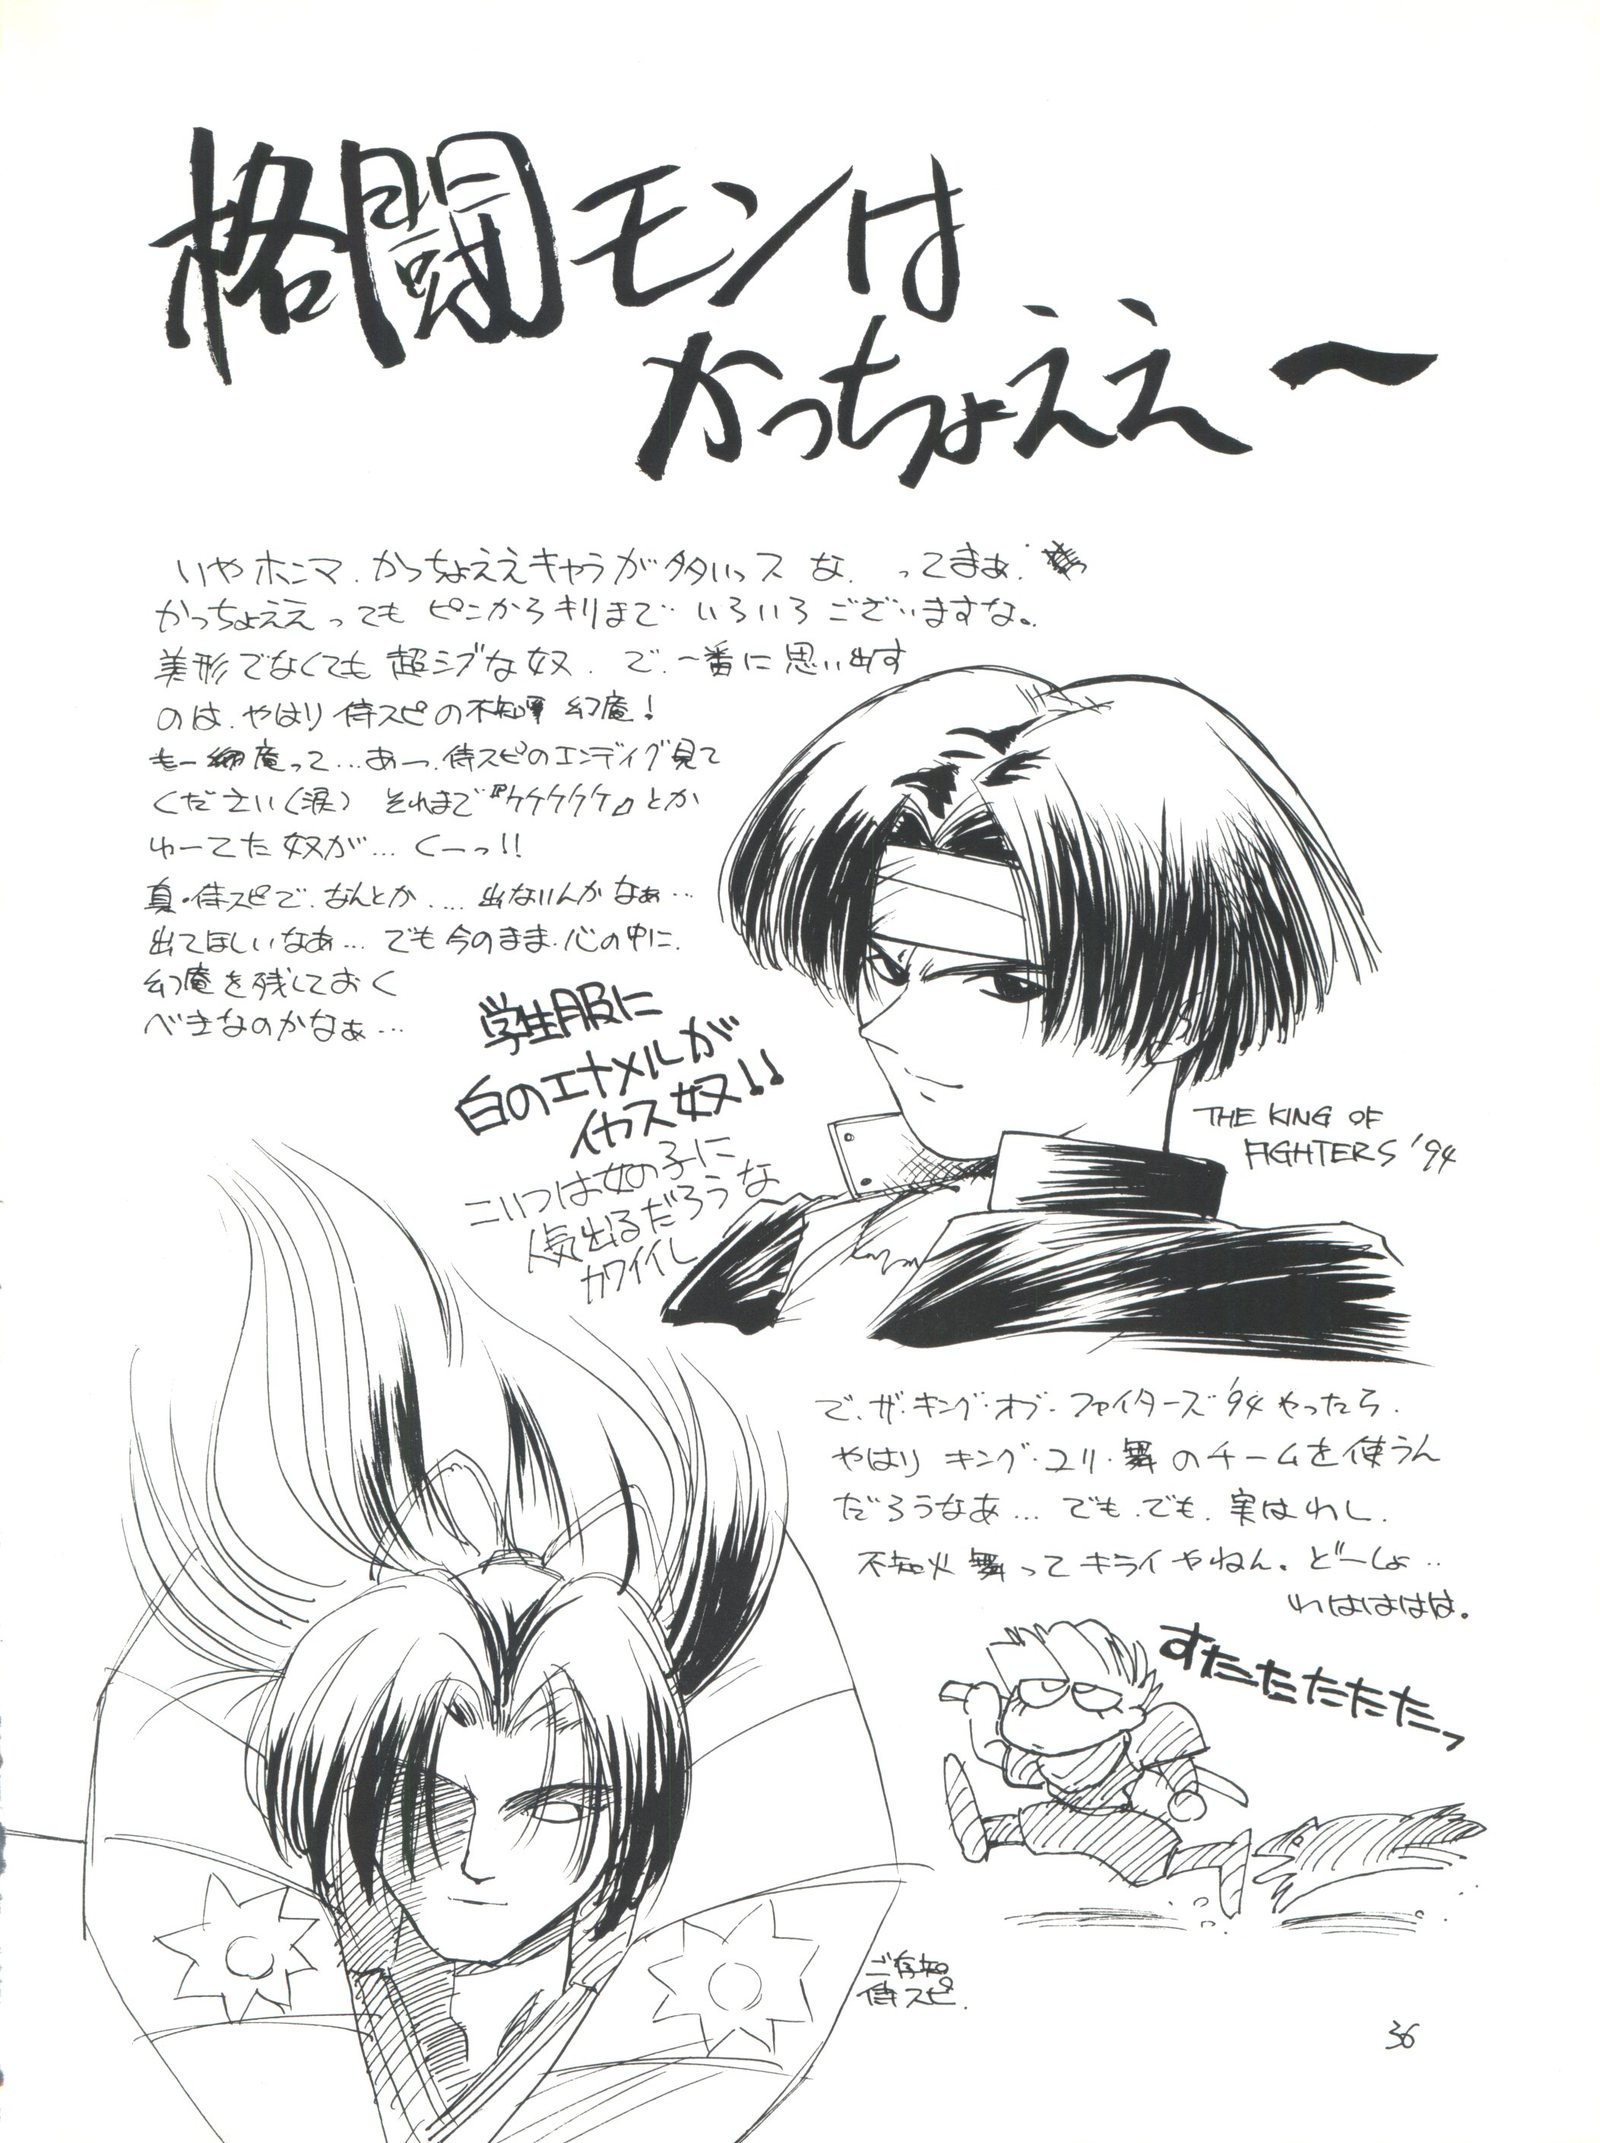 格闘モンは
かっちょええ〜
いやホンマ.かっちょええキャラが多いっスな.ってまぁ.
かっちょええってもピンからキリまで.いろいろございますな。
美形でなくても超シブな奴.で.一番に思い出す
のは.やはり侍スピの不知 幻庵!
もー 幻庵って…あーっ.侍スピのエンディング見て
ください(涙) それまで『ケケケケケ』とか
ゆーてた奴が… くーっ!!
真・侍スピで.なんとか.… 出ないんかなぁ…
出てほしいなあ… でも今のまま.心の中に.
幻庵を残しておく
べきなのかなぁ…
学生服に
白のエナメルが
イカス奴!!
こいつは女の子に
人気出るだろうな
カワイイし
THE KING OF
FIGHTERS '94
で.ザ・キング・オブ・ファイターズ'94やったら.
やはり キング・ユリ・舞のチームを使うん
だろうなあ… でも.でも.実はわし.
不知火 舞ってキライやねん。どーしょ..
わはははは。
すたたたたたっ
ご存知
侍スピ.
36